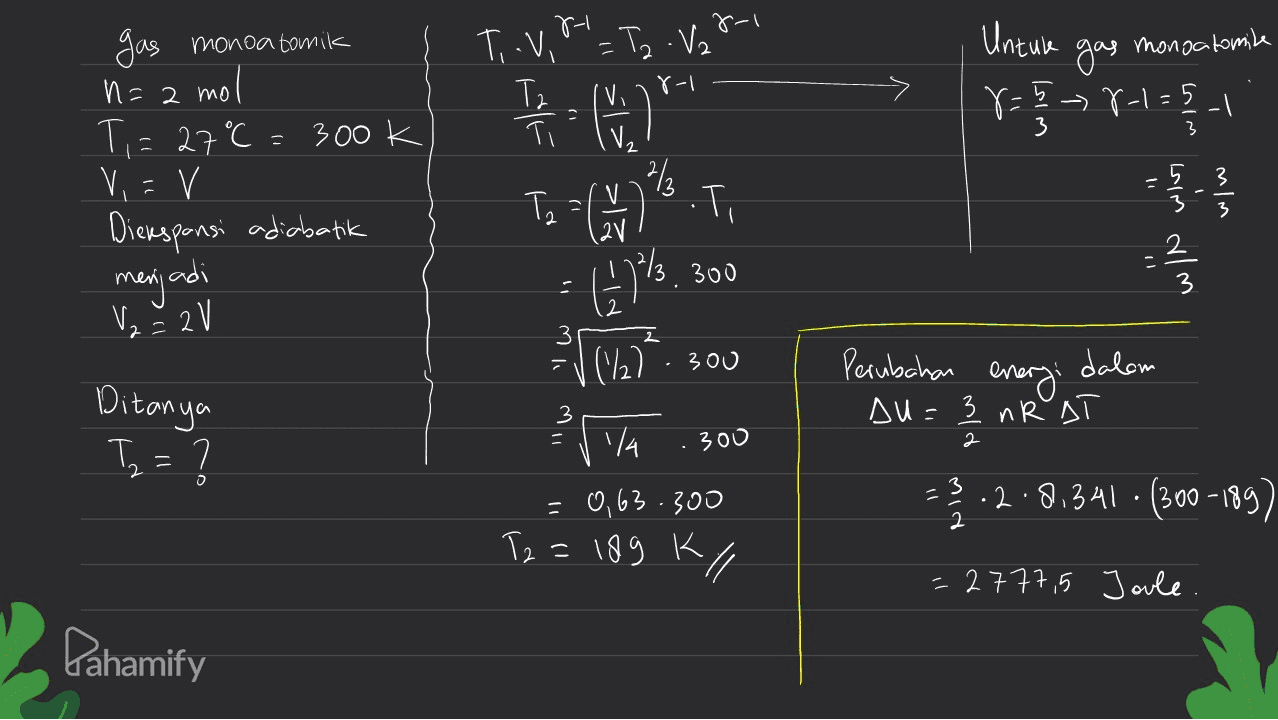 gas monoatomik
n = 2 mol
T₁ = 27 °C = 300 K
V₁ = V
Diekspansi adiabatik
menjadi
V₂ = 2V
Ditanya
T₂ = ?
T₁ . V₁^γ-1 = T₂ . V₂^γ-1
T₂/T₁ = (V₁/V₂)^γ-1 →
T₂ = (V/2V)^2/3 . T₁
= (1/2)^2/3 . 300
= ³√(1/2)² . 300
= ³√1/4 . 300
= 0,63 . 300
T₂ = 189 K //
Untuk gas monoatomik
γ = 5/3 → γ-1 = 5/3 - 1
= 5/3 - 3/3
= 2/3
Perubahan energi dalam
ΔU = 3/2 nR ΔT
= 3/2 . 2 . 8,341 . (300 - 189)
= 2777,5 Joule.
Pahamify